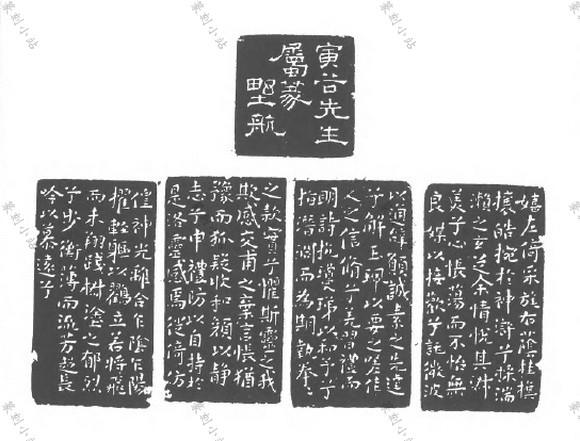 寅谷先生
屬篆
野航
嬉左倚采旄右蔭桂旗
攘皓腕於神滸兮採湍
瀨之玄芝余情悅其淑
美兮心悵蕩而不怡無
良媒以接歡兮託微波
以通辭願誠素之先達
兮解玉珮以要之嗟佳
人之信脩兮羌習禮而
明詩抗瓊珶以和予兮
指潛淵而為期執拳
之款實兮懼斯靈之我
欺感交甫之棄言悵猶
豫而狐疑收和顏以靜
志兮申禮防以自持於
是洛靈感焉徙倚彷
徨神光離合乍陰乍陽
擢輕軀以鶴立若將飛
而未翔踐椒塗之郁烈
兮步蘅薄而流芳超長
吟以慕遠兮
篆刻小站
篆刻小站
篆刻小站
篆刻小站
篆刻小站
篆刻小站
篆刻小站
篆刻小站
篆刻小站